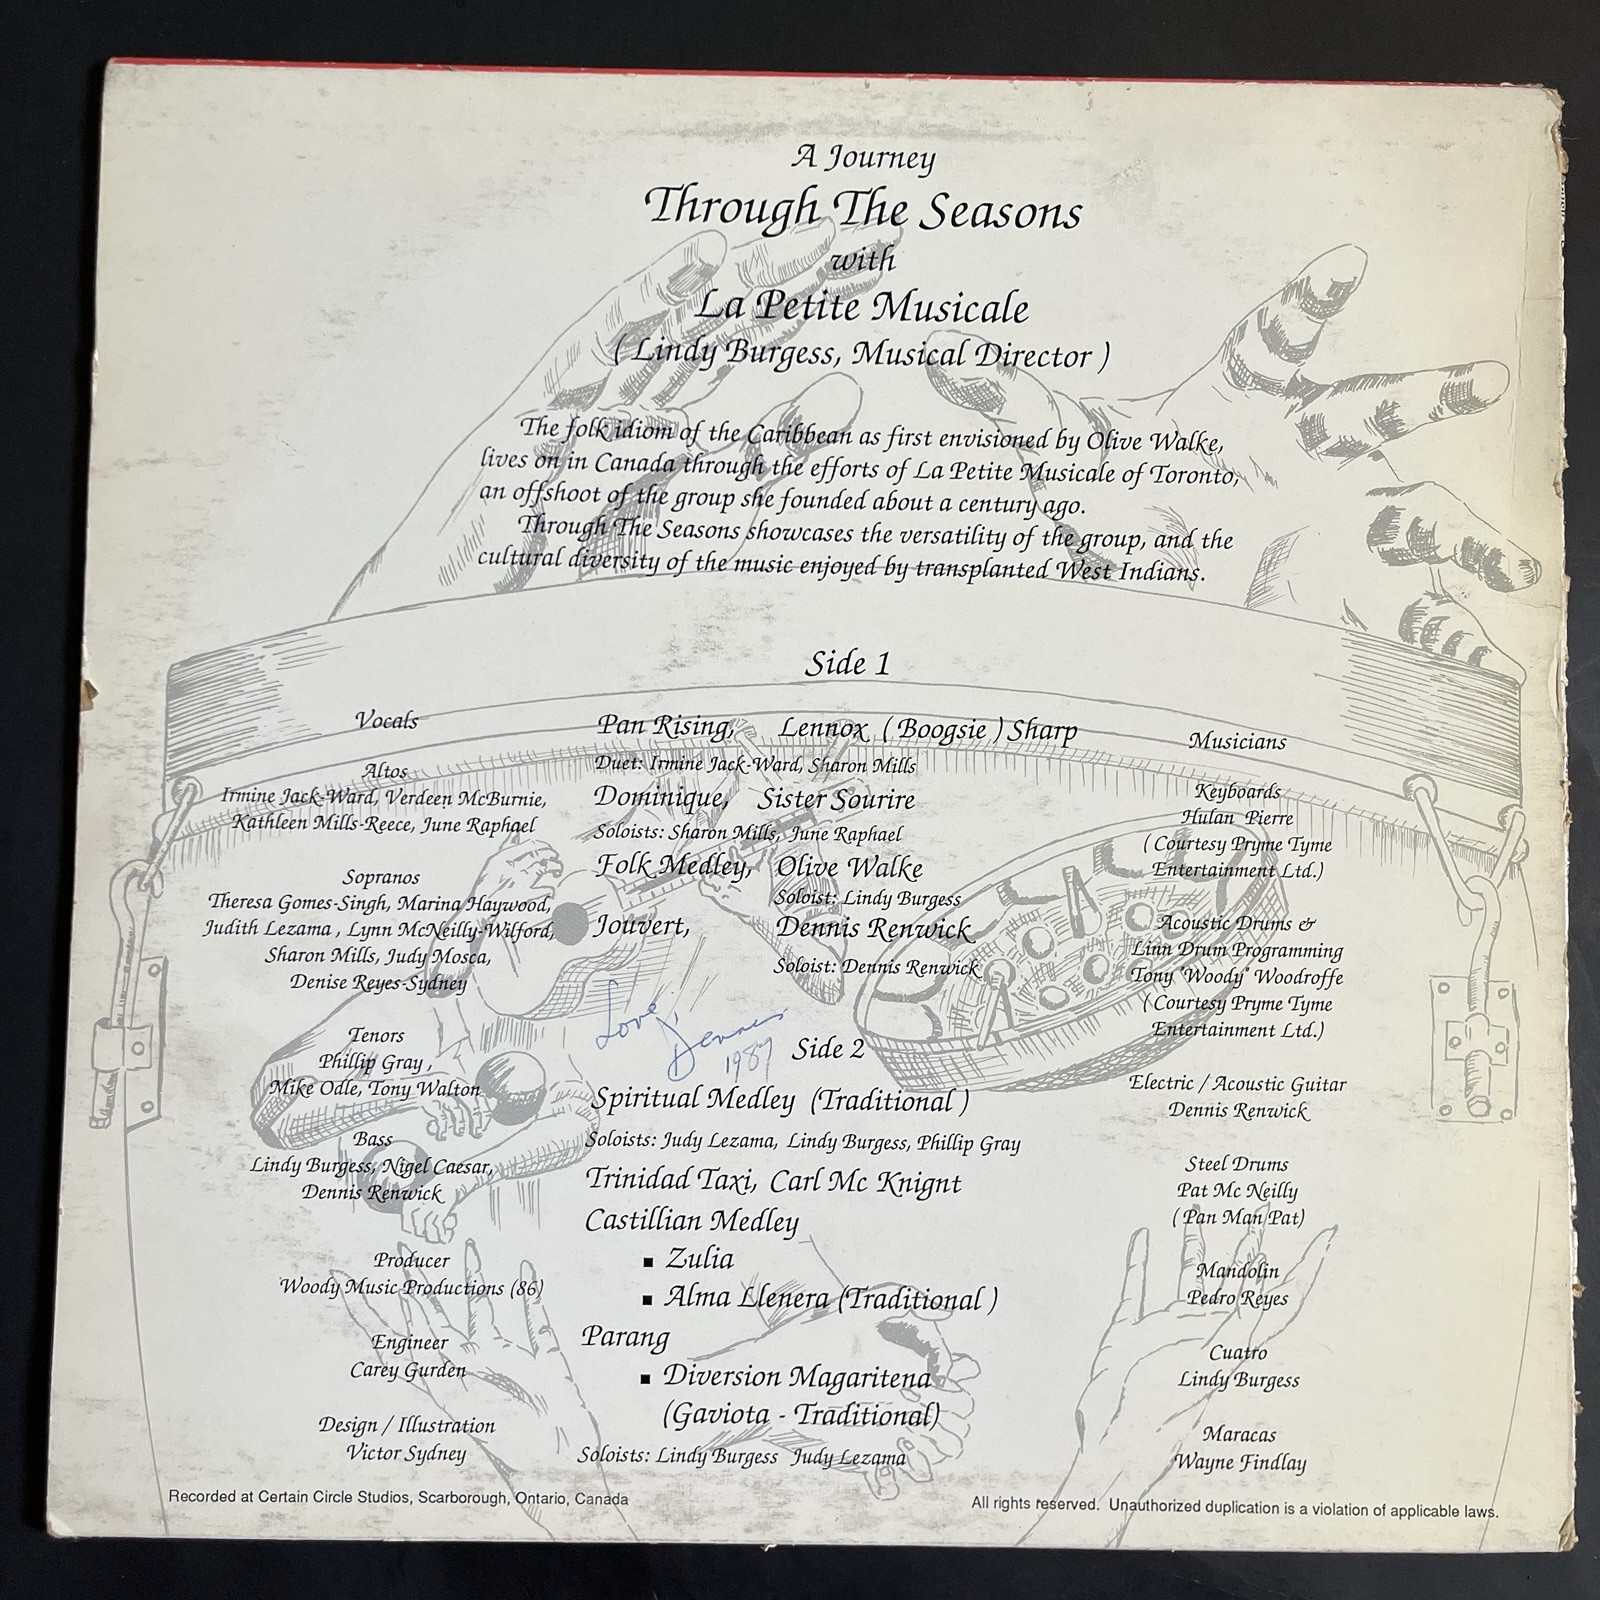 A Journey
Through The Seasons
with
La Petite Musicale
( Lindy Burgess, Musical Director )
The folk idiom of the Caribbean as first envisioned by Olive Walke,
lives on in Canada through the efforts of La Petite Musicale of Toronto,
an offshoot of the group she founded about a century ago.
Through The Seasons showcases the versatility of the group, and the
cultural diversity of the music enjoyed by transplanted West Indians.
Vocals
Altos
Irmine Jack-Ward, Verdeen McBurnie,
Kathleen Mills-Reece, June Raphael
Sopranos
Theresa Gomes-Singh, Marina Haywood,
Judith Lezama , Lynn McNeilly-Wilford,
Sharon Mills, Judy Mosca,
Denise Reyes-Sydney
Tenors
Phillip Gray ,
Mike Odle, Tony Walton
Bass
Lindy Burgess, Nigel Caesar,
Dennis Renwick
Producer
Woody Music Productions (86)
Engineer
Carey Gurden
Design / Illustration
Victor Sydney
Side 1
Pan Rising, Lennox ( Boogsie ) Sharp
Duet: Irmine Jack-Ward, Sharon Mills
Dominique, Sister Sourire
Soloists: Sharon Mills, June Raphael
Folk Medley, Olive Walke
Soloist: Lindy Burgess
Jouvert, Dennis Renwick
Soloist: Dennis Renwick
Love,
Dennis
1987
Side 2
Spiritual Medley (Traditional )
Soloists: Judy Lezama, Lindy Burgess, Phillip Gray
Trinidad Taxi, Carl Mc Knignt
Castillian Medley
▪ Zulia
▪ Alma Llenera (Traditional )
Parang
▪ Diversion Magaritena
(Gaviota - Traditional)
Soloists: Lindy Burgess Judy Lezama
Musicians
Keyboards
Hulan Pierre
( Courtesy Pryme Tyme
Entertainment Ltd.)
Acoustic Drums &
Linn Drum Programming
Tony "Woody" Woodroffe
( Courtesy Pryme Tyme
Entertainment Ltd.)
Electric / Acoustic Guitar
Dennis Renwick
Steel Drums
Pat Mc Neilly
( Pan Man Pat)
Mandolin
Pedro Reyes
Cuatro
Lindy Burgess
Maracas
Wayne Findlay
Recorded at Certain Circle Studios, Scarborough, Ontario, Canada
All rights reserved. Unauthorized duplication is a violation of applicable laws.